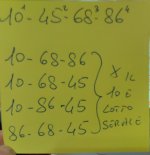 10¹-45²-68³-86⁴
10-68-86
10-68-45
10-86-45
86-68-45
X IL
10 E
LOTTO
SERALE